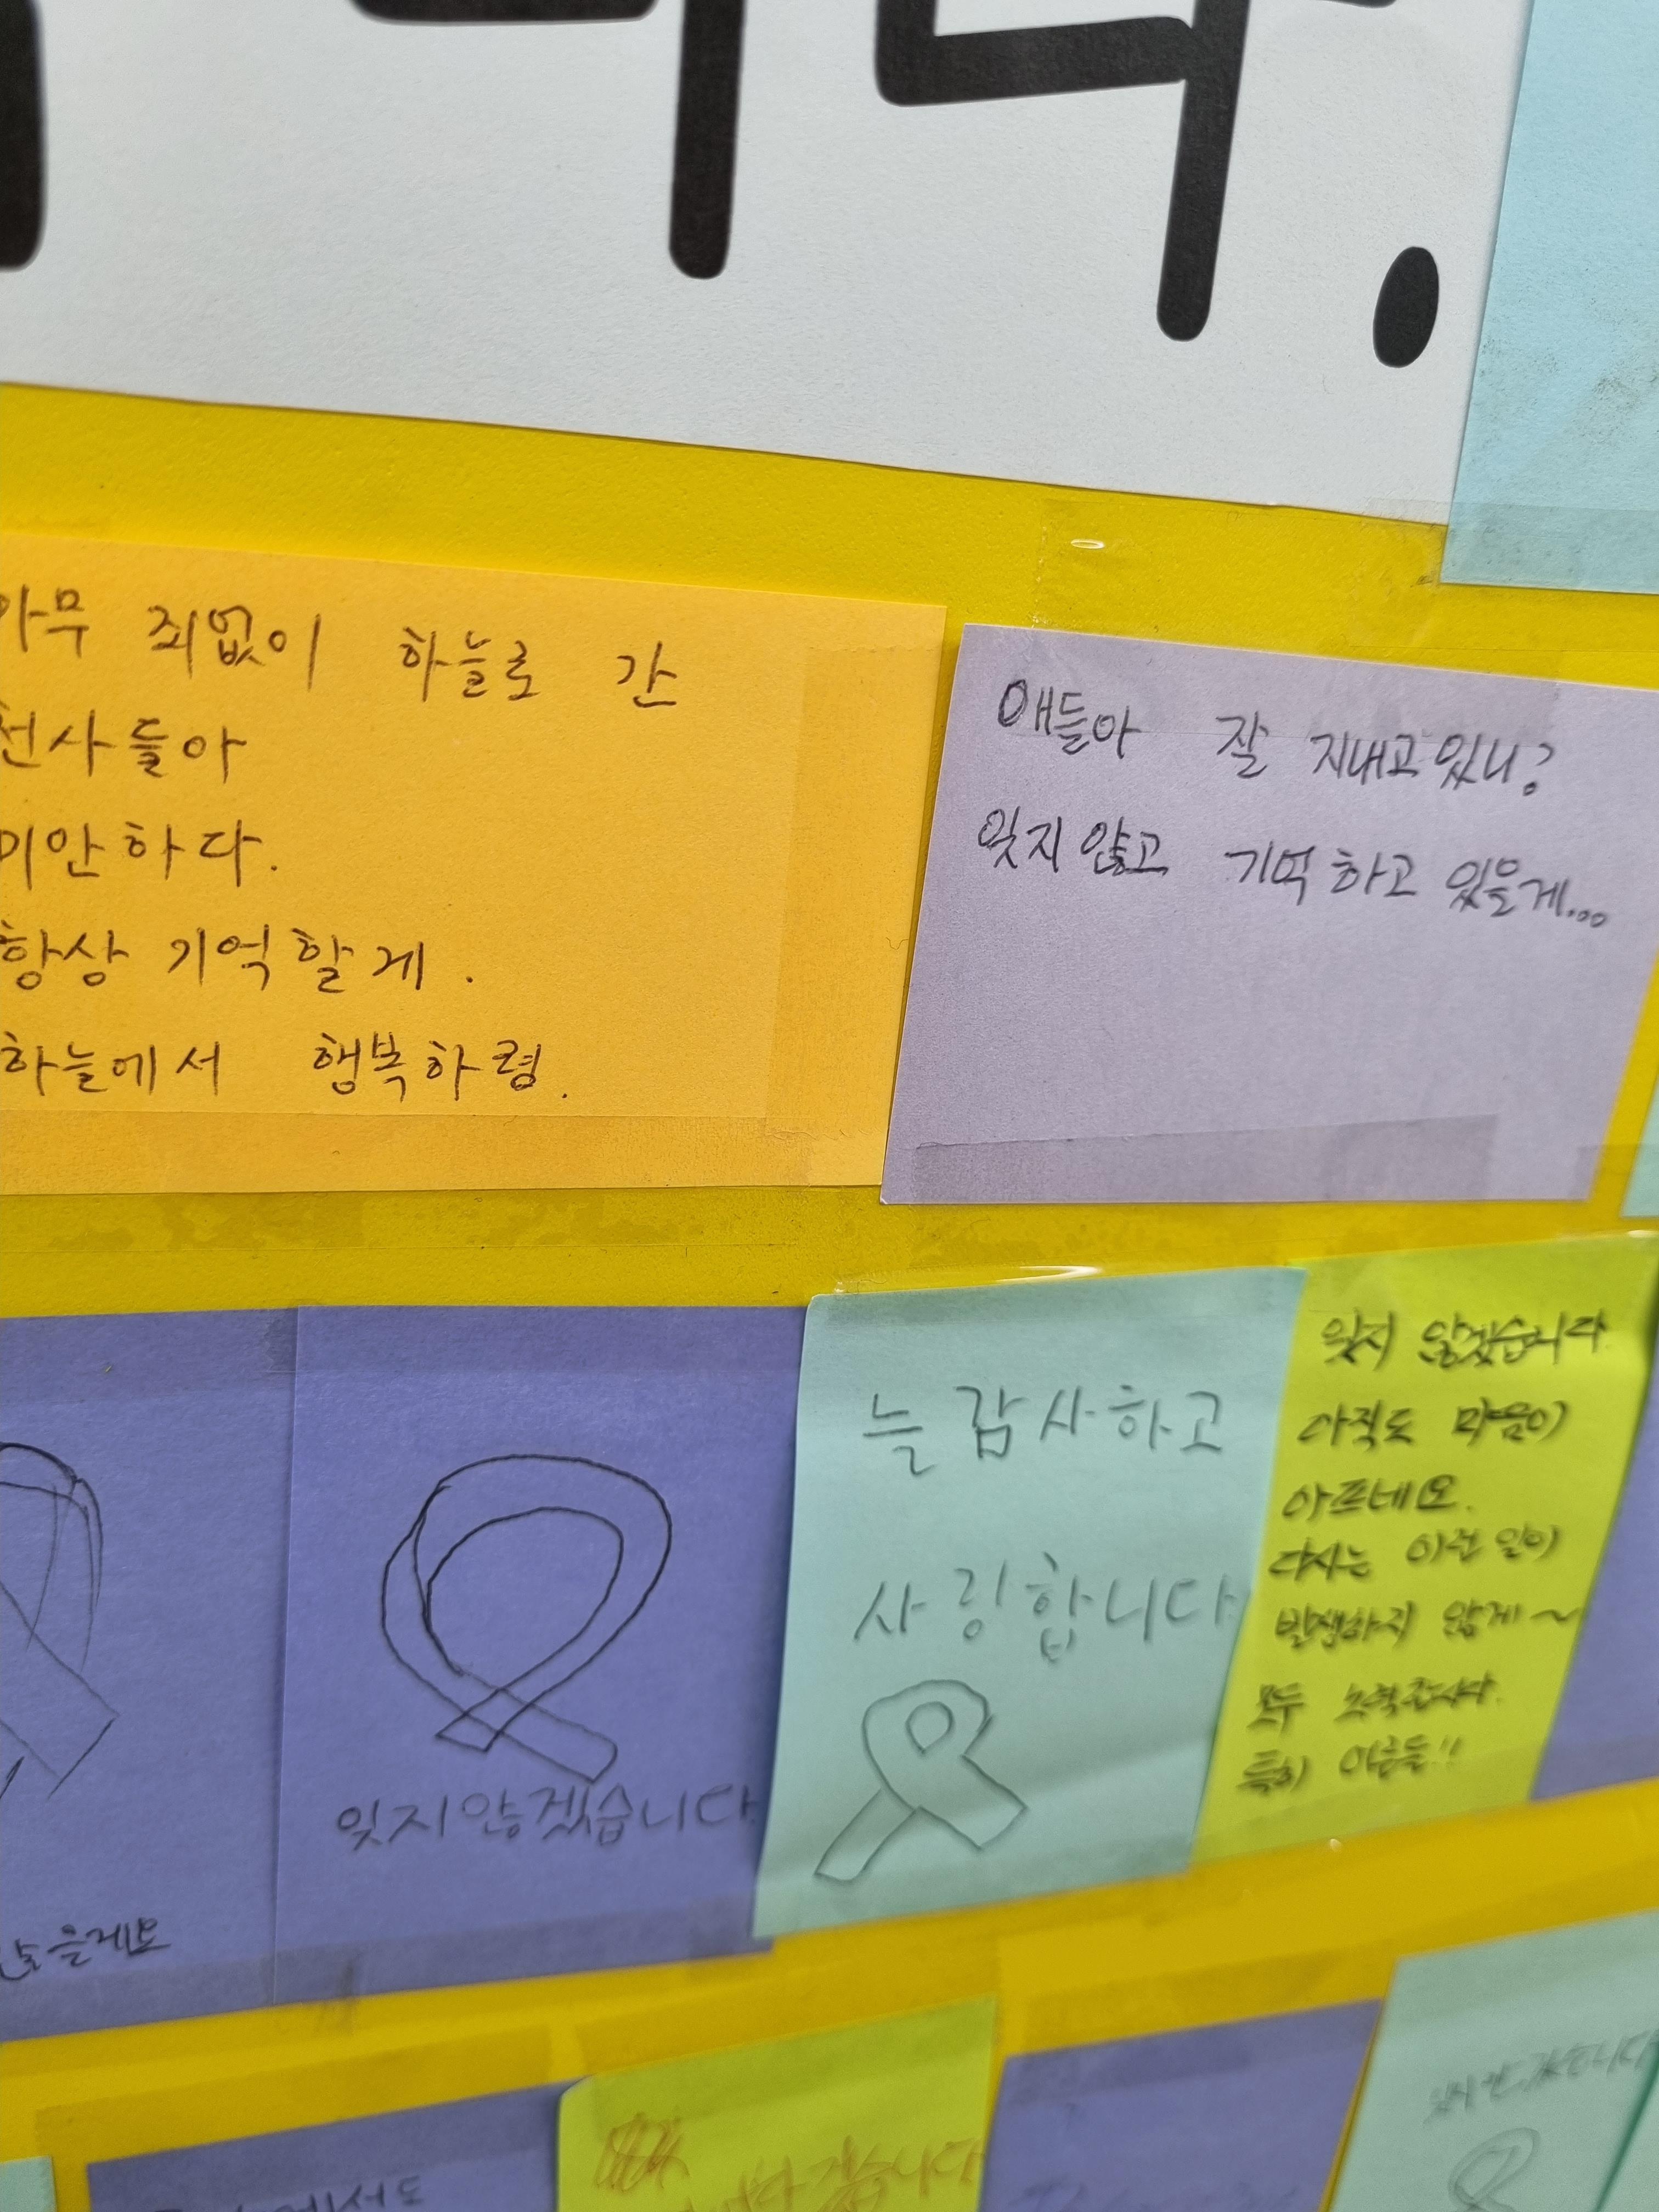 아무 죄없이 하늘로 간
천사들아
미안하다.
항상 기억할게.
하늘에서 행복하렴.
얘들아 잘 지내고있니?
잊지 않고 기억하고 있을게...
잊지않겠습니다.
늘 감사하고
사랑합니다.
잊지 않겠습니다.
아직도 마음이
아프네요.
다시는 이런 일이
발생하지 않게~
모두 노력합시다.
특히 어른들!!